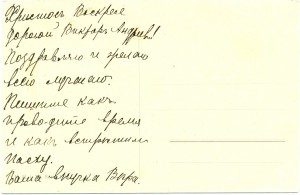 Христосъ Воскресе
Дорогой Викторъ Андреев!
Поздравляю и желаю
всего лучшаго.
Пишите какъ
проводите время
и какъ встретили
Пасху.
Ваша внучка Вера.